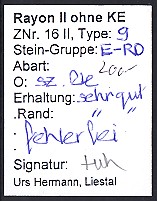 Rayon II ohne KE
ZNr. 16 II, Type: 9
Stein-Gruppe: E-RO
Abart: 200.-
O: sz.
Erhaltung: sehr gut
.Rand: " "
: fehlerfrei
Signatur:
Urs Hermann, Liestal